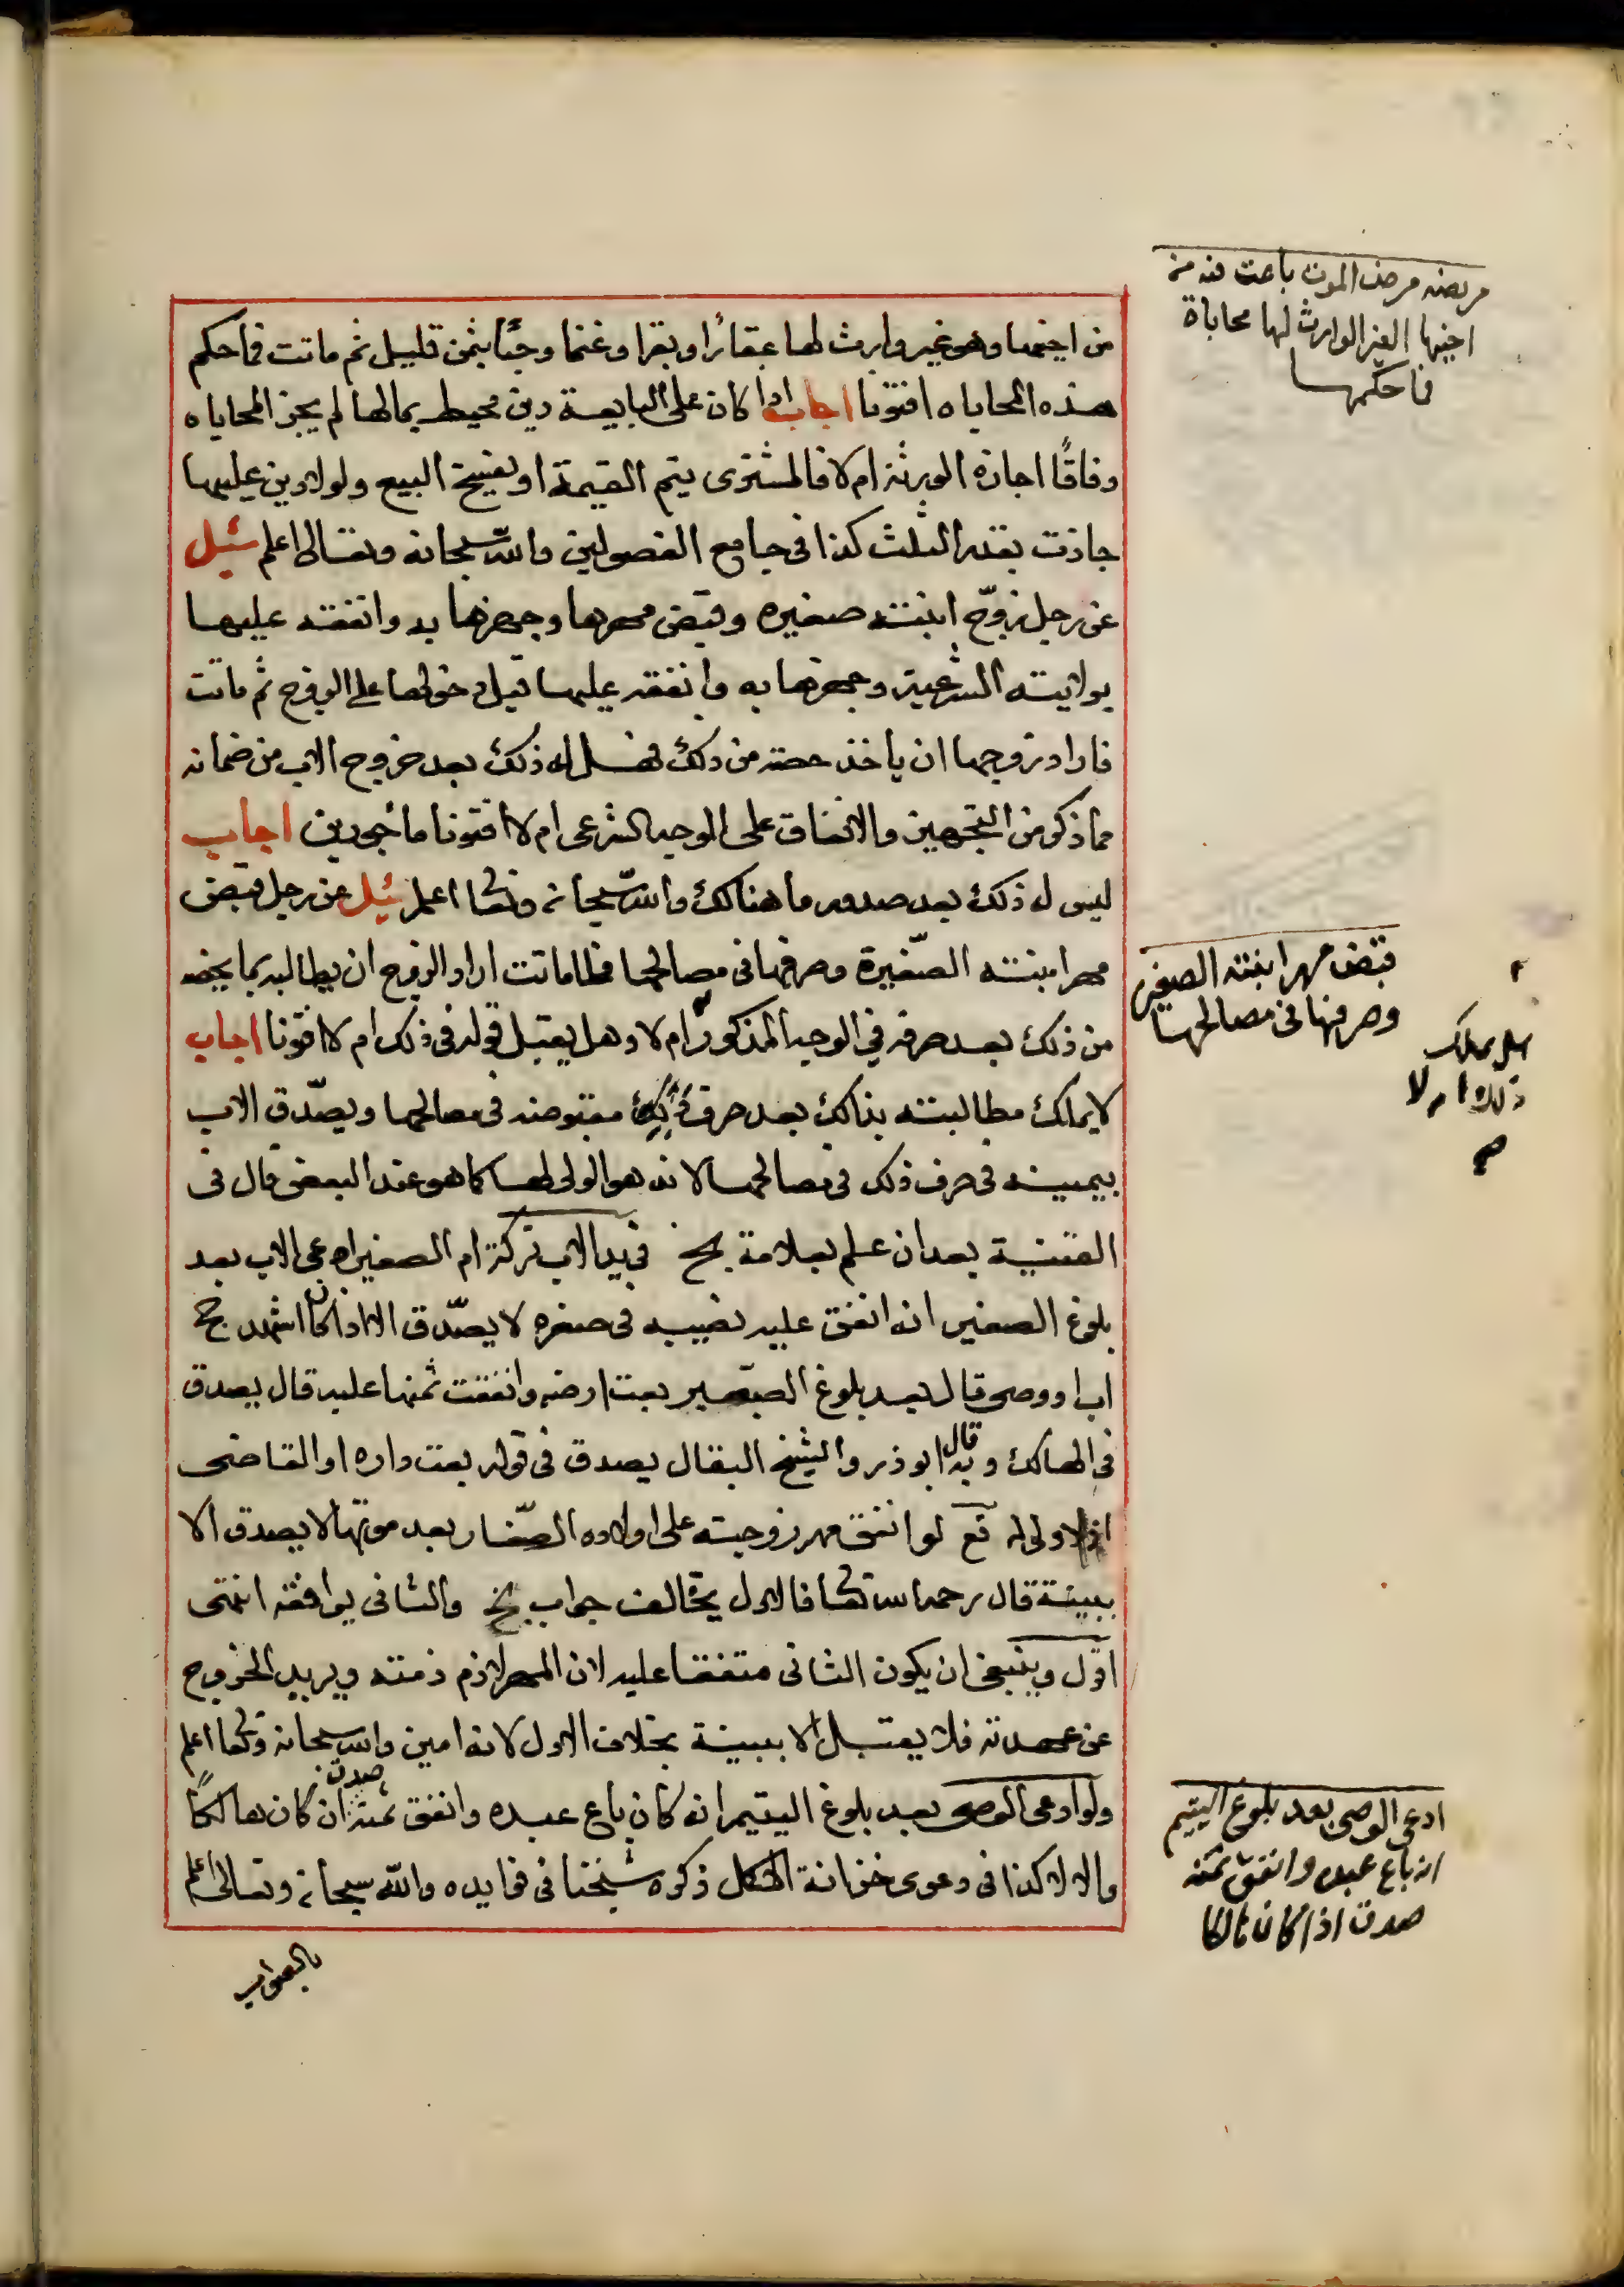 من اخيها وهو غير وارث لها عقارًا وبقرا وغنما وحبًا بثمن قليل ثم ماتت فما حكم
هذه المحاياه افتونا اجاب اذا كان على البايعة دين محيط بمالها لم يجز المحاياه
وفاقًا اجازه الورثة ام لا فالمشترى يتم القيمة او يفسخ البيع ولو لا دين عليها
جازت بقدر الثلث كذا فى جامع الفصولين والله سبحانه وتعالى اعلم سئيل
عن رجل زوّج ابنته صغيره وقبض مهرها وجهزها به وانفقه عليها
بولايته الشرعية وجهزها به وانفقه عليها قبل دخولها على الزوج ثم ماتت
فاراد زوجها ان ياخذ حصته من ذلك فهل له ذلك بعد خروج الاب من ضمانه
مما ذكر من التجهيز والانفاق على الوجه الشرعى ام لا افتونا ماجورين اجاب
ليس له ذلك بعد صدور ما هنالك والله سبحانه وتعالى اعلم سئيل عن رجل قبض
مهر ابنته الصّغيرة وصرفها فى مصالحها فلما ماتت اراد الزوج ان يطالبه بما يخصه
من ذلك بعد صرفه في الوجه المذكور ام لا وهل يقبل قوله فى ذلك ام لا افتونا اجاب
لا يملك مطالبته بذالك بعد صرف مقبوضه فى مصالحها ويصدّق الاب
بيمينه فى صرف ذلك فى مصالحها لانه هو الولى لها كما هو عند البعض قال فى
القنية بعد ان علم بعلامة بخ فى يد الاب تركة ام الصغير ادعى الاب بعد
بلوغ الصغير انه انفق عليه نصيبه فى صغره لا يصدّق الا اذا كان اشهد بخ
اب او وصى قال بعد بلوغ الصغير بعت ارضه وانفقت ثمنها عليه قال يصدق
فى الهالك وبه قال ابو ذر والشيخ البقال يصدق فى قوله بعت داره او القاضى
اذ لا ولى له قع لو انفق مهر زوجته على اولاده الصّغار بعد موتها لا يصدق الا
ببينة قال رحمه الله تعالى فالاول يخالف جواب بخ والثانى يوافقه انتهى
اقول وينبغى ان يكون الثانى متفقا عليه لان المهر لازم ذمته ويريد الخروج
عن عهدته فلا يقبل الا ببينة بخلاف الاول لانه امين والله سبحانه وتعالى اعلم
ولو ادعى الوصى بعد بلوغ اليتيم انه كان باع عبده وانفق ثمنه صدق ان كان هالكًا
والا لا كذا فى دعوى خزانة الاكمل ذكره شيخنا فى فوايده والله سبحانه وتعالى اعلم
بالصواب
مريضه مرض الموت باعت منه من
اخيها الغير الوارث لها محاباة
فما حكمها
قبض مهر ابنته الصغيره
وصرفها فى مصالحها
هل يملك
ذلك ام لا
ادعى الوصى بعد بلوغ اليتيم
انه باع عبده وانفق ثمنه
صدق اذا كان هالكا